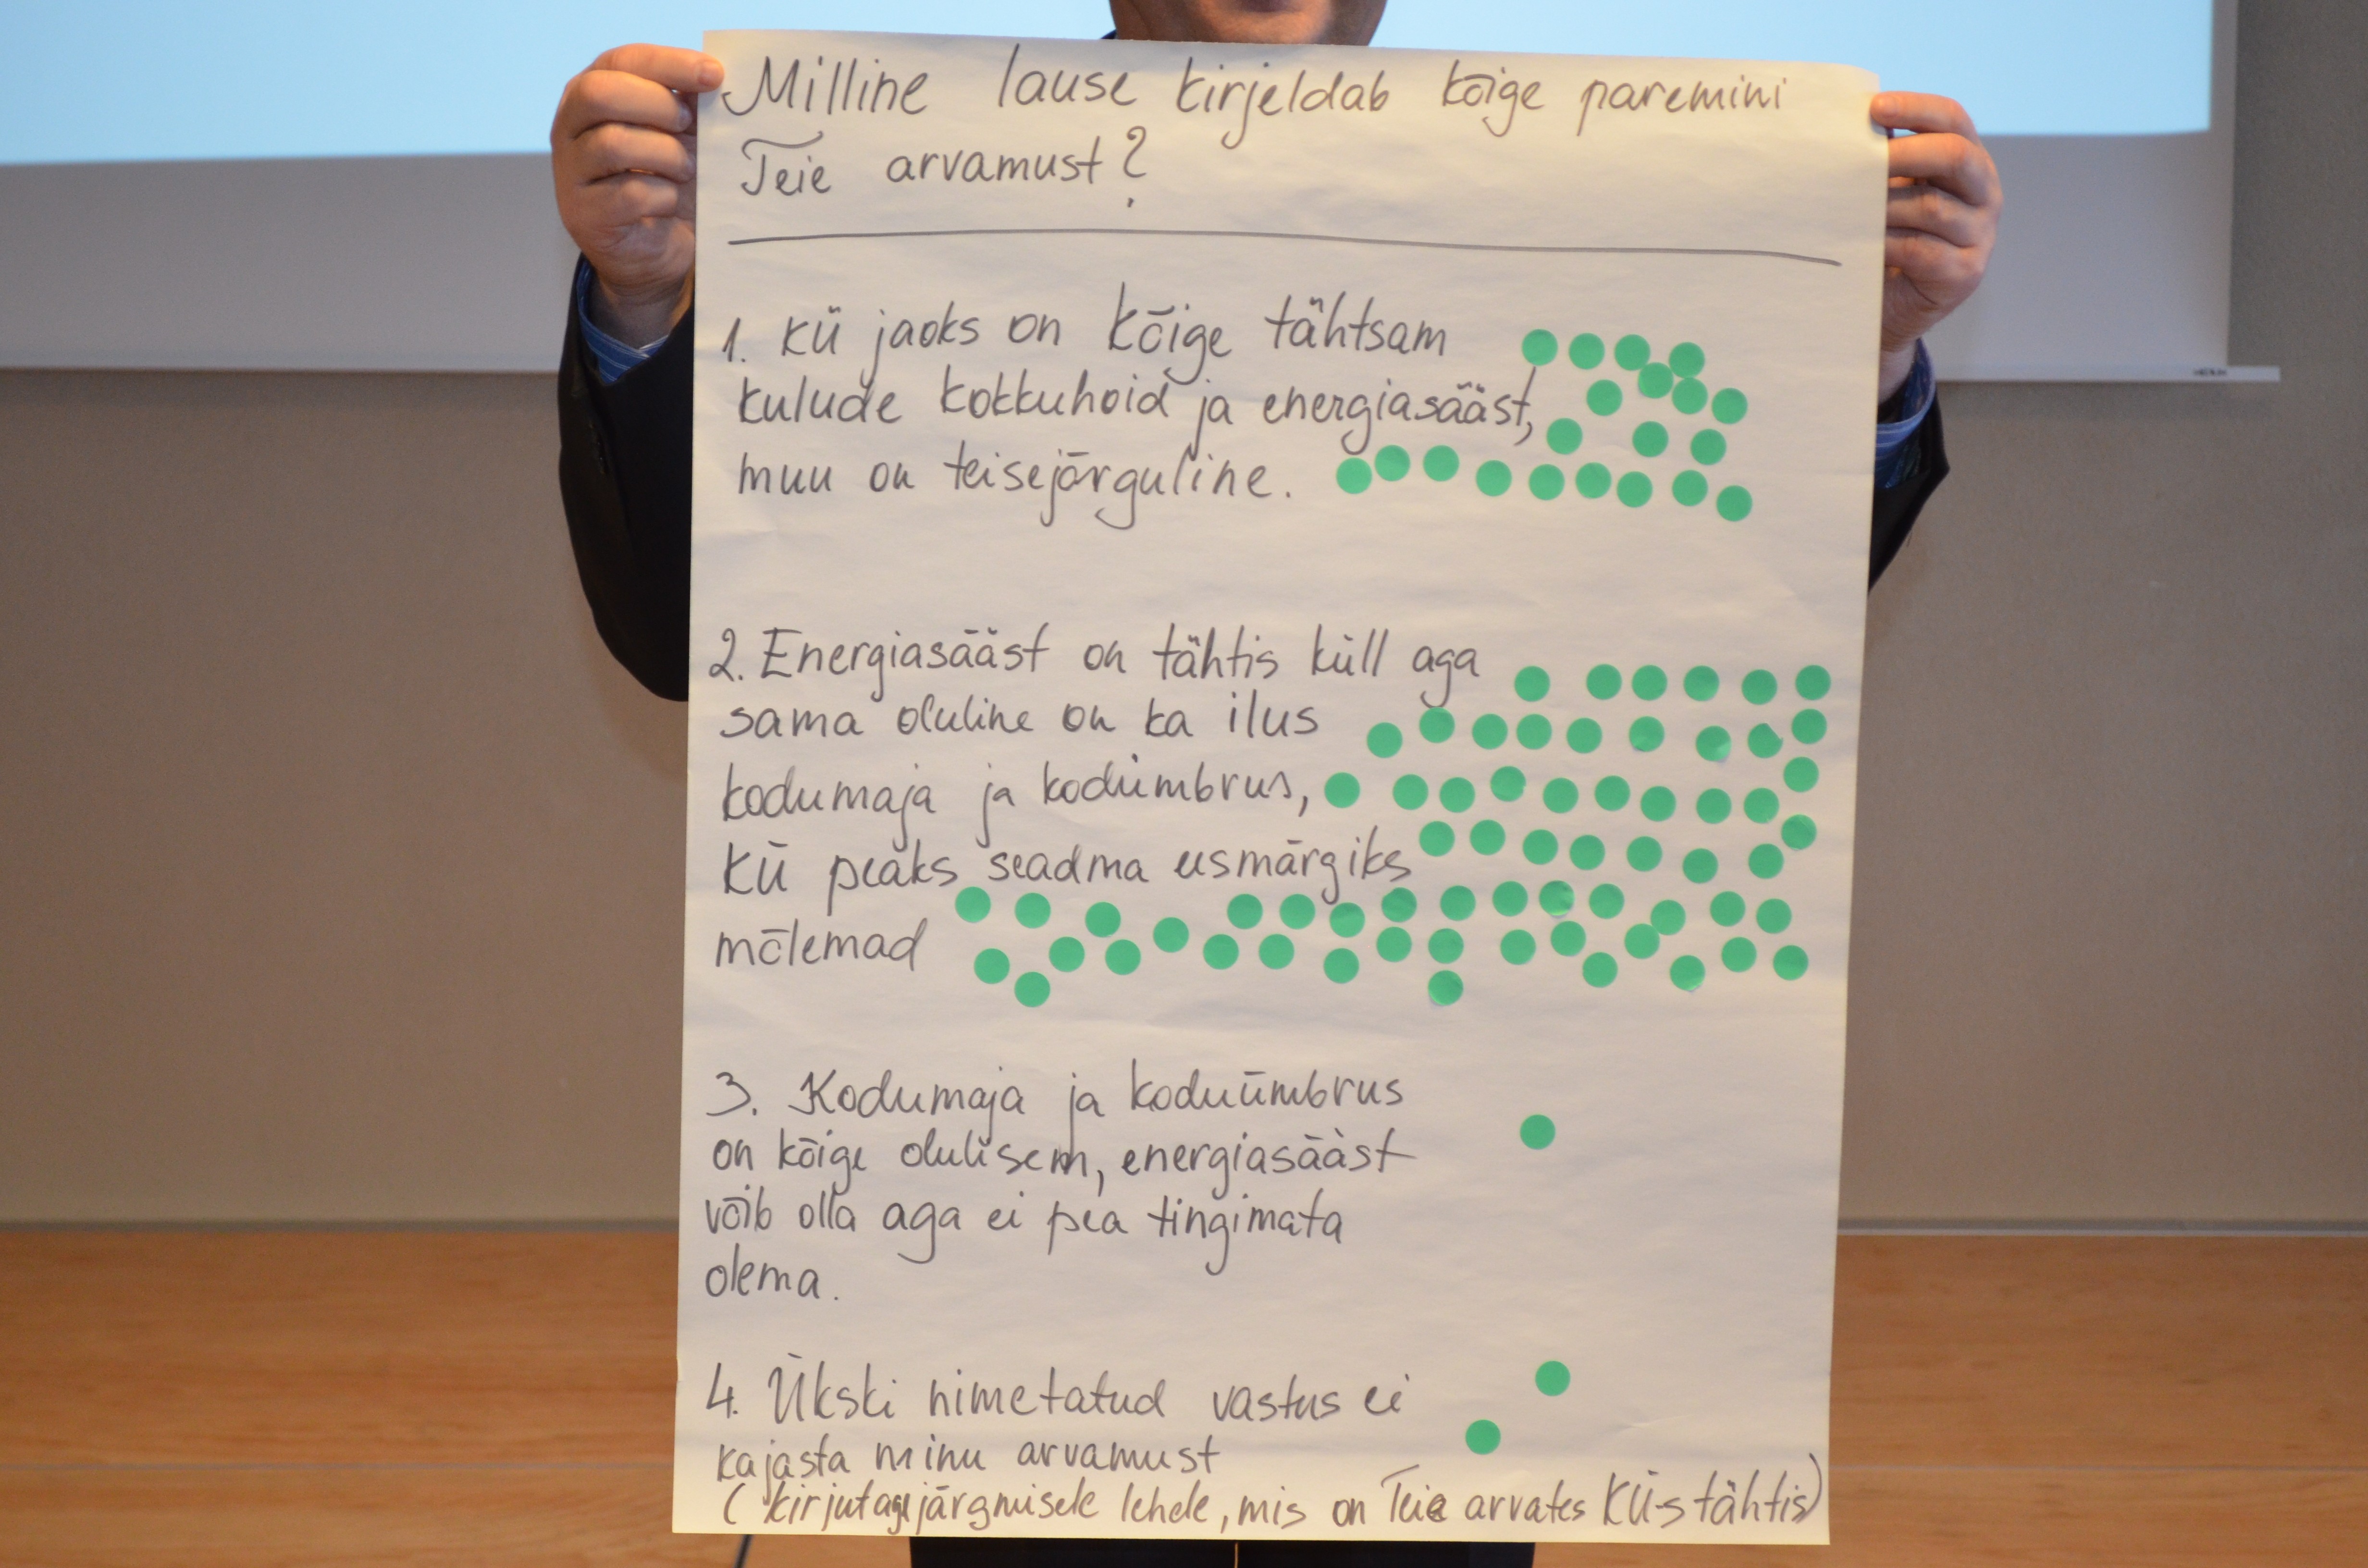 Milline lause kirjeldab kõige paremini
Teie arvamust?
1. KÜ jaoks on kõige tähtsam
kulude kokkuhoid ja energiasääst,
muu on teisejärguline.
2. Energiasääst on tähtis küll aga
sama oluline on ka ilus
kodumaja ja kodümbrus,
KÜ peaks seadma eesmärgiks
mõlemad
3. Kodumaja ja koduümbrus
on kõige olulisem, energiasääst
võib olla aga ei pea tingimata
olema.
4. Ükski nimetatud vastus ei
kajasta minu arvamust
(kirjutage järgmisele lehele, mis on Teie arvates KÜ-s tähtis)